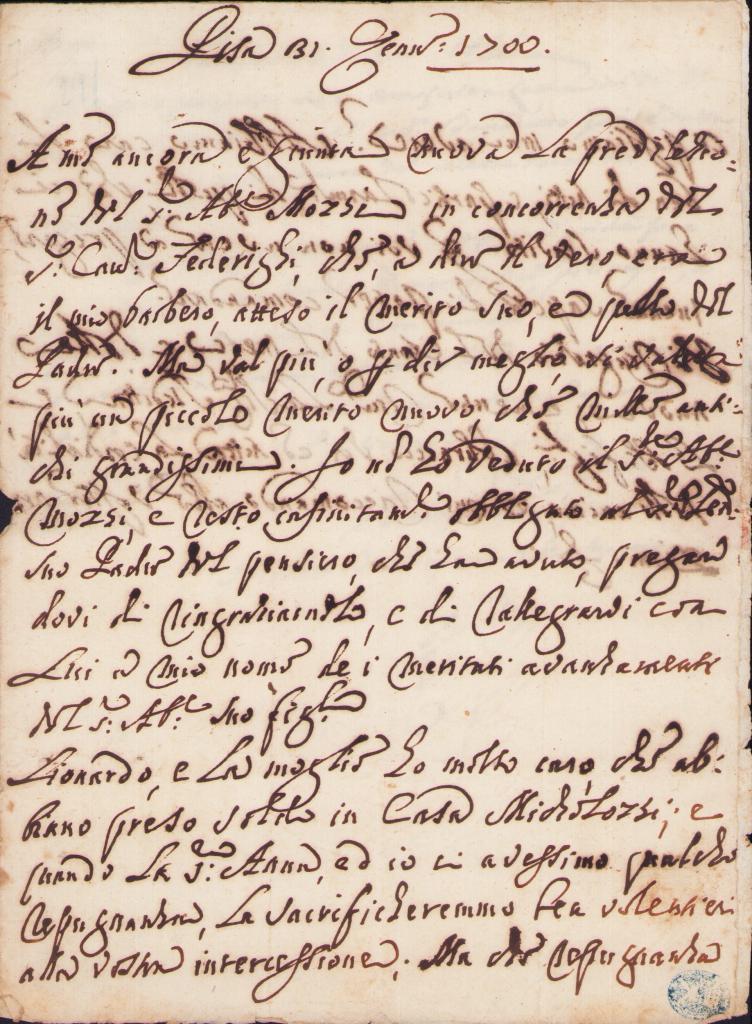 Pisa 31. Genn.º 1700.
A me ancora è giunta nuova la predilezio=
ne del S.r Ab.e Mozzi in concorrenza del
S.r Cav.r Federighi, che, a dire il vero, era
il mio barbero, atteso il merito suo, e quello del
Padre. Ma val più, o p dir meglio, si
più un piccolo merito nuovo, che mille anti=
chi grandissimi. Io nō ho veduto il S.r Ab.e
Mozzi, e resto infinitam.e obbligato al
suo Padre del pensiero, che ha avuto, pregan
dovi di ringraziarnelo, e di rallegrarvi con
Lui a mio nome de i meritati avanzamenti
del S.r Ab.e suo figl.o
Lionardo, e la moglie ho molto caro che ab=
biano preso soldo in Casa Michelozzi; e
quando la S.ra Anna, ed io ci avessimo qualche
repugnanza, la sacrificheremmo ben volentieri
alla vostra intercessione. Ma che repugnanza